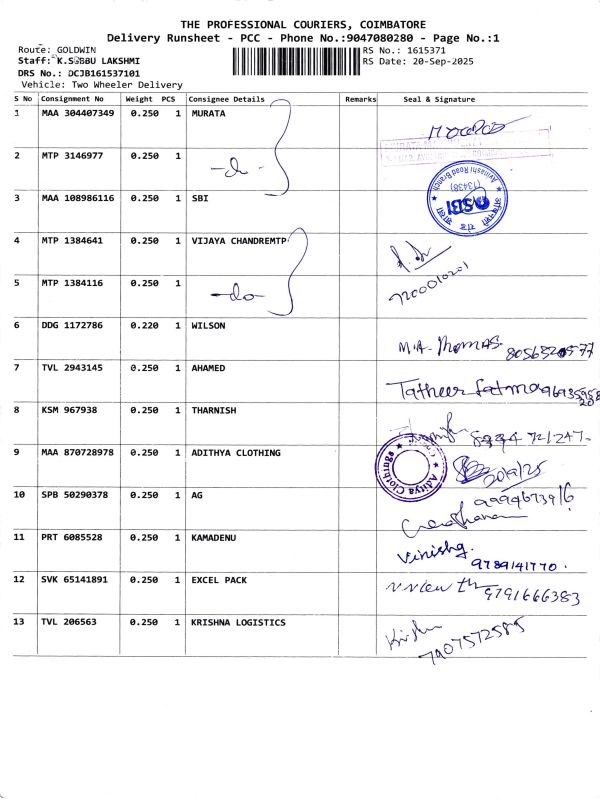 THE PROFESSIONAL COURIERS, COIMBATORE
Delivery Runsheet - PCC - Phone No.:9047080280 - Page No.:1
Route: GOLDWIN
RS No.: 1615371
Staff: K.SUBBU LAKSHMI
RS Date: 20-Sep-2025
DRS No.: DCJB161537101
Vehicle: Two Wheeler Delivery
S No Consignment No Weight PCS Consignee Details Remarks Seal & Signature
1 MAA 304407349 0.250 1 MURATA
2 MTP 3146977 0.250 1 -do-
3 MAA 108986116 0.250 1 SBI
Avinashi Road Branch
(13438)
SBI
4 MTP 1384641 0.250 1 VIJAYA CHANDREMTP
5 MTP 1384116 0.250 1 -do- 7200010201
6 DDG 1172786 0.220 1 WILSON M.A. Thomas.
7 TVL 2943145 0.250 1 AHAMED Tatheer fatma
8 KSM 967938 0.250 1 THARNISH
9 MAA 870728978 0.250 1 ADITHYA CLOTHING Aditya Clothings 20/9/25
10 SPB 50290378 0.250 1 AG
11 PRT 6085528 0.250 1 KAMADENU 9789141770.
12 SVK 65141891 0.250 1 EXCEL PACK 9791666383
13 TVL 206563 0.250 1 KRISHNA LOGISTICS Krishna 7907572585